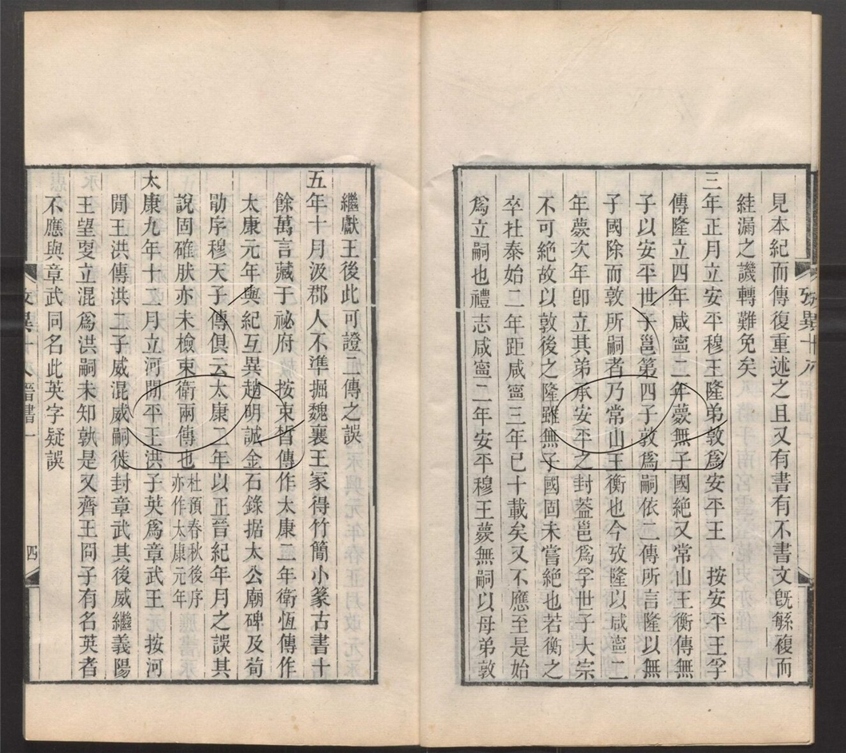 見本紀而傳復重述之且又有書有不書文旣繇複而
絓漏之譏轉難免矣
三年正月立安平穆王隆弟敦爲安平王　按安平王孚
傳隆立四年咸寍二年薨無子國絕又常山王衡傳無
子以安平世子邕第四子敦爲嗣依二傳所言隆以無
子國除而敦所嗣者乃常山王衡也今攷隆以咸寍二
年薨次年卽立其弟承安平之封葢邕爲孚世子大宗
不可絕故以敦後之隆雖無子國固未嘗絕也若衡之
卒杜泰始二年距咸寍三年已十載矣又不應至是始
爲立嗣也禮志咸寍二年安平穆王薨無嗣以母弟敦
攷異十八晉書一
四
繼獻王後此可證二傳之誤
五年十月汲郡人不準掘魏襄王冢得竹簡小篆古書十
餘萬言藏于祕府　按束晳傳作太康二年衛恆傳作
太康元年與紀互異趙明誠金石錄據太公廟碑及荀
勖序穆天子傳俱云太康二年以正晉紀年月之誤其
說固確肰亦未檢束衛兩傳也杜預春秋後序
亦作太康元年
太康九年十二月立河閒平王洪子英爲章武王　按河
閒王洪傳洪二子威混威嗣徙封章武其後威繼義陽
王望叓立混爲洪嗣未知孰是又齊王冏子有名英者
不應與章武同名此英字疑誤